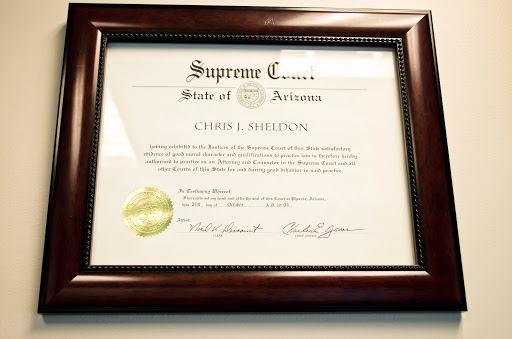 Supreme Court
State of Arizona
CHRIS J. SHELDON
having exhibited to the Justices of the Supreme Court of this State satisfactory
evidence of good moral character and qualifications to practice law is therefore hereby
authorized to practice as an Attorney and Counselor in the Supreme Court and all
other Courts of this State for and during good behavior in said practice.
In Testimony Whereof,
I hereunto set my hand and affix the seal of this Court at Phoenix, Arizona,
this 21st day of October A.D. 20 04
Attest:
CLERK
CHIEF JUSTICE